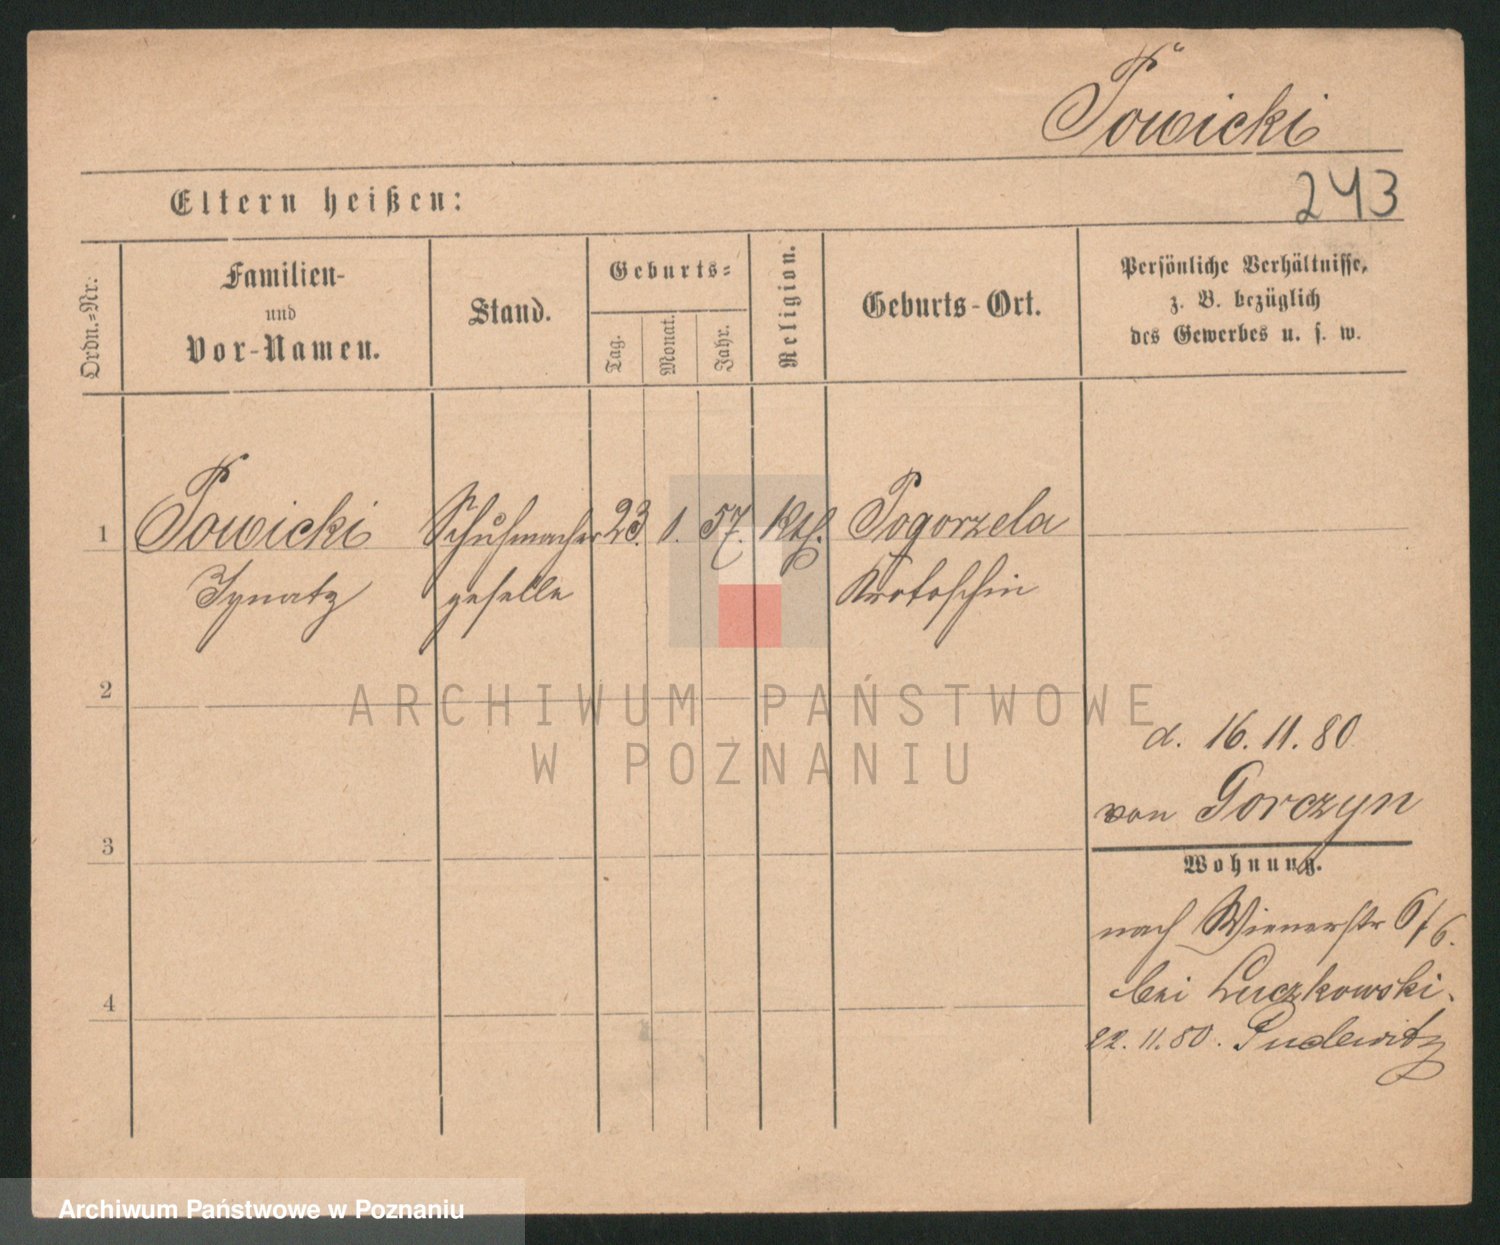 Powicki
243
Eltern heißen:
Ordn.-Nr.
Familien-
und
Vor-Namen.
Stand.
Geburts-
Tag.
Monat.
Jahr.
Religion.
Geburts-Ort.
Persönliche Verhältnisse,
z. B. bezüglich
des Gewerbes u. s. w.
1 Powicki Schuhmacher 23. 1. 57. Kth. Pogorzela
Ignatz geselle Krotoschin
2
ARCHIWUM PAŃSTWOWE
W POZNANIU
d. 16. 11. 80
von Gorczyn
3
Wohnung.
nach Wienerstr 6/6.
bei Luczkowski.
4
22. 11. 80. Pudewitz
Archiwum Państwowe w Poznaniu